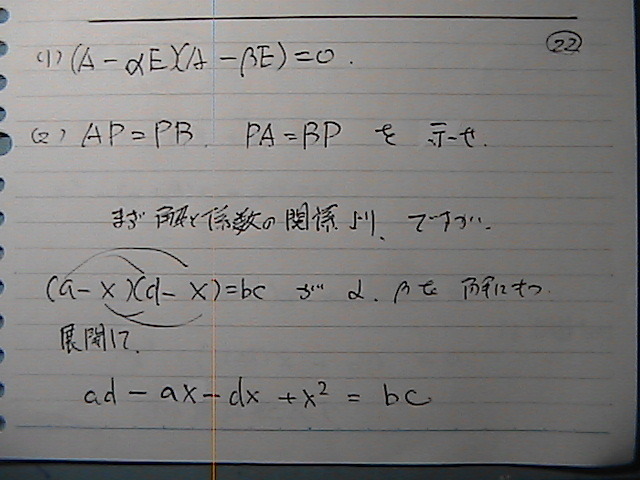 (22)
(1) (A - αE)(A - βE) = 0.
(2) AP = PB. PA = BP を 示せ.
まず 解と係数の関係より、ですが.
(a - x)(d - x) = bc が α. βを 解にもつ.
展開して.
ad - ax - dx + x² = bc